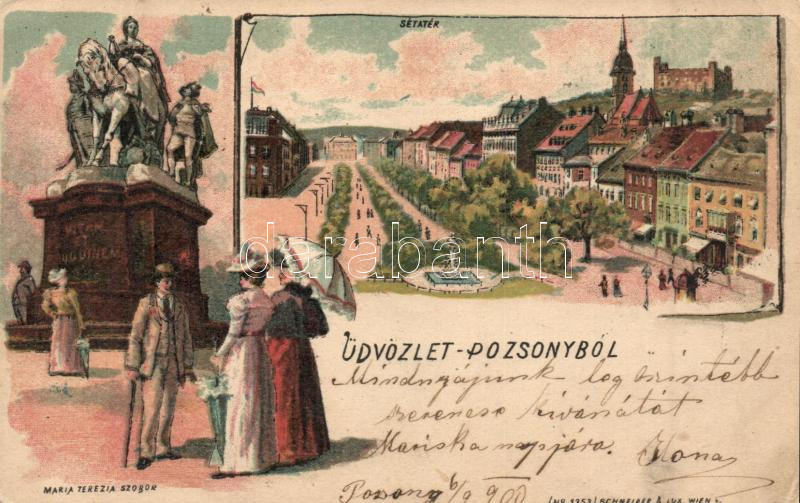 SÉTATÉR
VITAM
ET SANGUINEM
darabanth
ÜDVÖZLET-POZSONYBÓL
Mindnyájunk leg őszintébb
szerencse kivánátát
Mariska napjára. Ilona
Pozsony 6/9 900
MARIA TEREZIA SZOBOR
SCHNEIDER & LUX WIEN